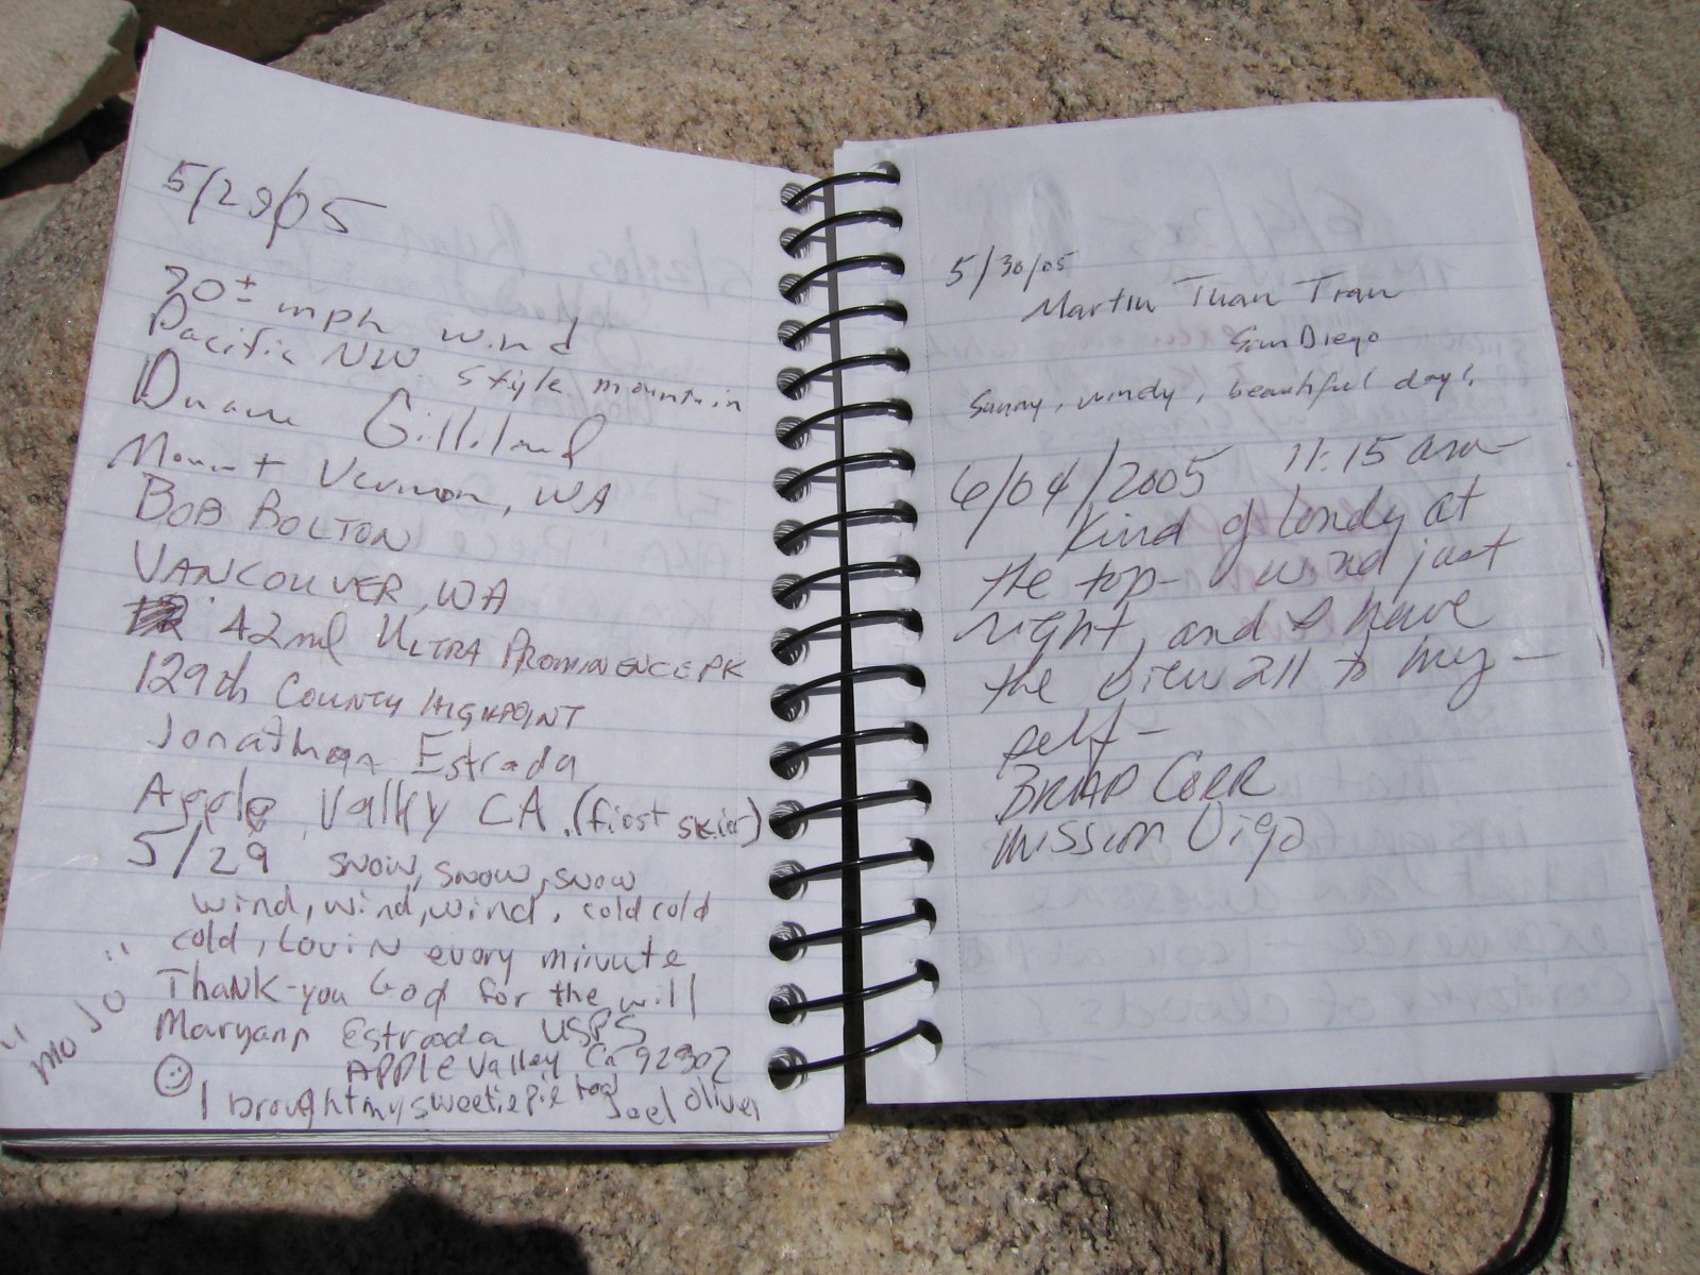 5/29/05
30± mph wind
Pacific NW style mountain
Duane Gilliland
Mount Vernon, WA
BOB BOLTON
VANCOUVER, WA
42nd ULTRA PROMINENCE PK
129th COUNTY HIGHPOINT
Jonathan Estrada
Apple Valley CA. (first skier)
5/29 snow, snow, snow
wind, wind, wind, cold cold
cold, Lovin every minute
Thank-you God for the will
Maryann Estrada USPS
APPLE Valley Ca 92307
"Mo Jo"
I brought my sweetiepie too
Joel Oliver
5/30/05
Martin Tuan Tran
San Diego
Sunny, windy, beautiful day!
6/04/2005 11:15 am
Kind of lonely at
the top- wind just
right, and I have
the view all to my-
self-
BRIAN CORR
Mission Viejo